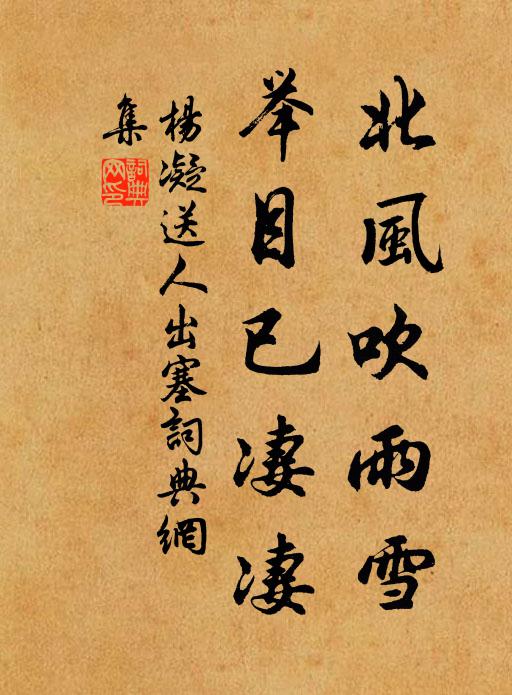 北風吹雨雪
举目已凄凄
楊凝送人出塞詞典網
集
詞典
网印